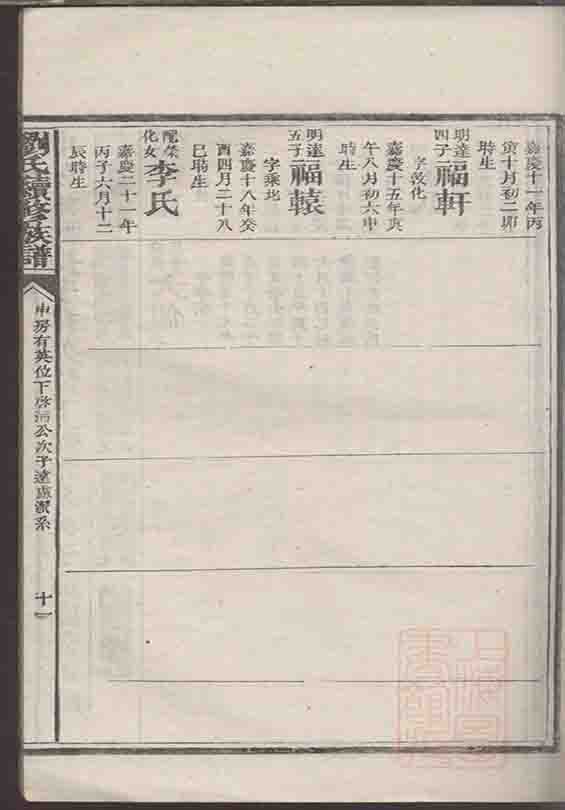 嘉慶十一年丙
寅十月初二卯
時生
明達
四子
福軒
字敦化
嘉慶十五年庚
午八月初六申
時生
明達
五子
福轅
字乘北
嘉慶十八年癸
酉四月二十八
巳時生
配榮
化女
李氏
嘉慶二十一年
丙子六月十二
辰時生
劉氏續修族譜
申房有英位下啓
公次子達
系
十一